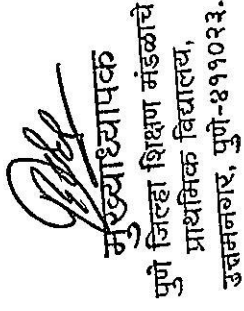 मुख्याध्यापक
पुणे जिल्हा शिक्षण मंडळाचे
प्राथमिक विद्यालय,
उत्तमनगर, पुणे-४११०२३.